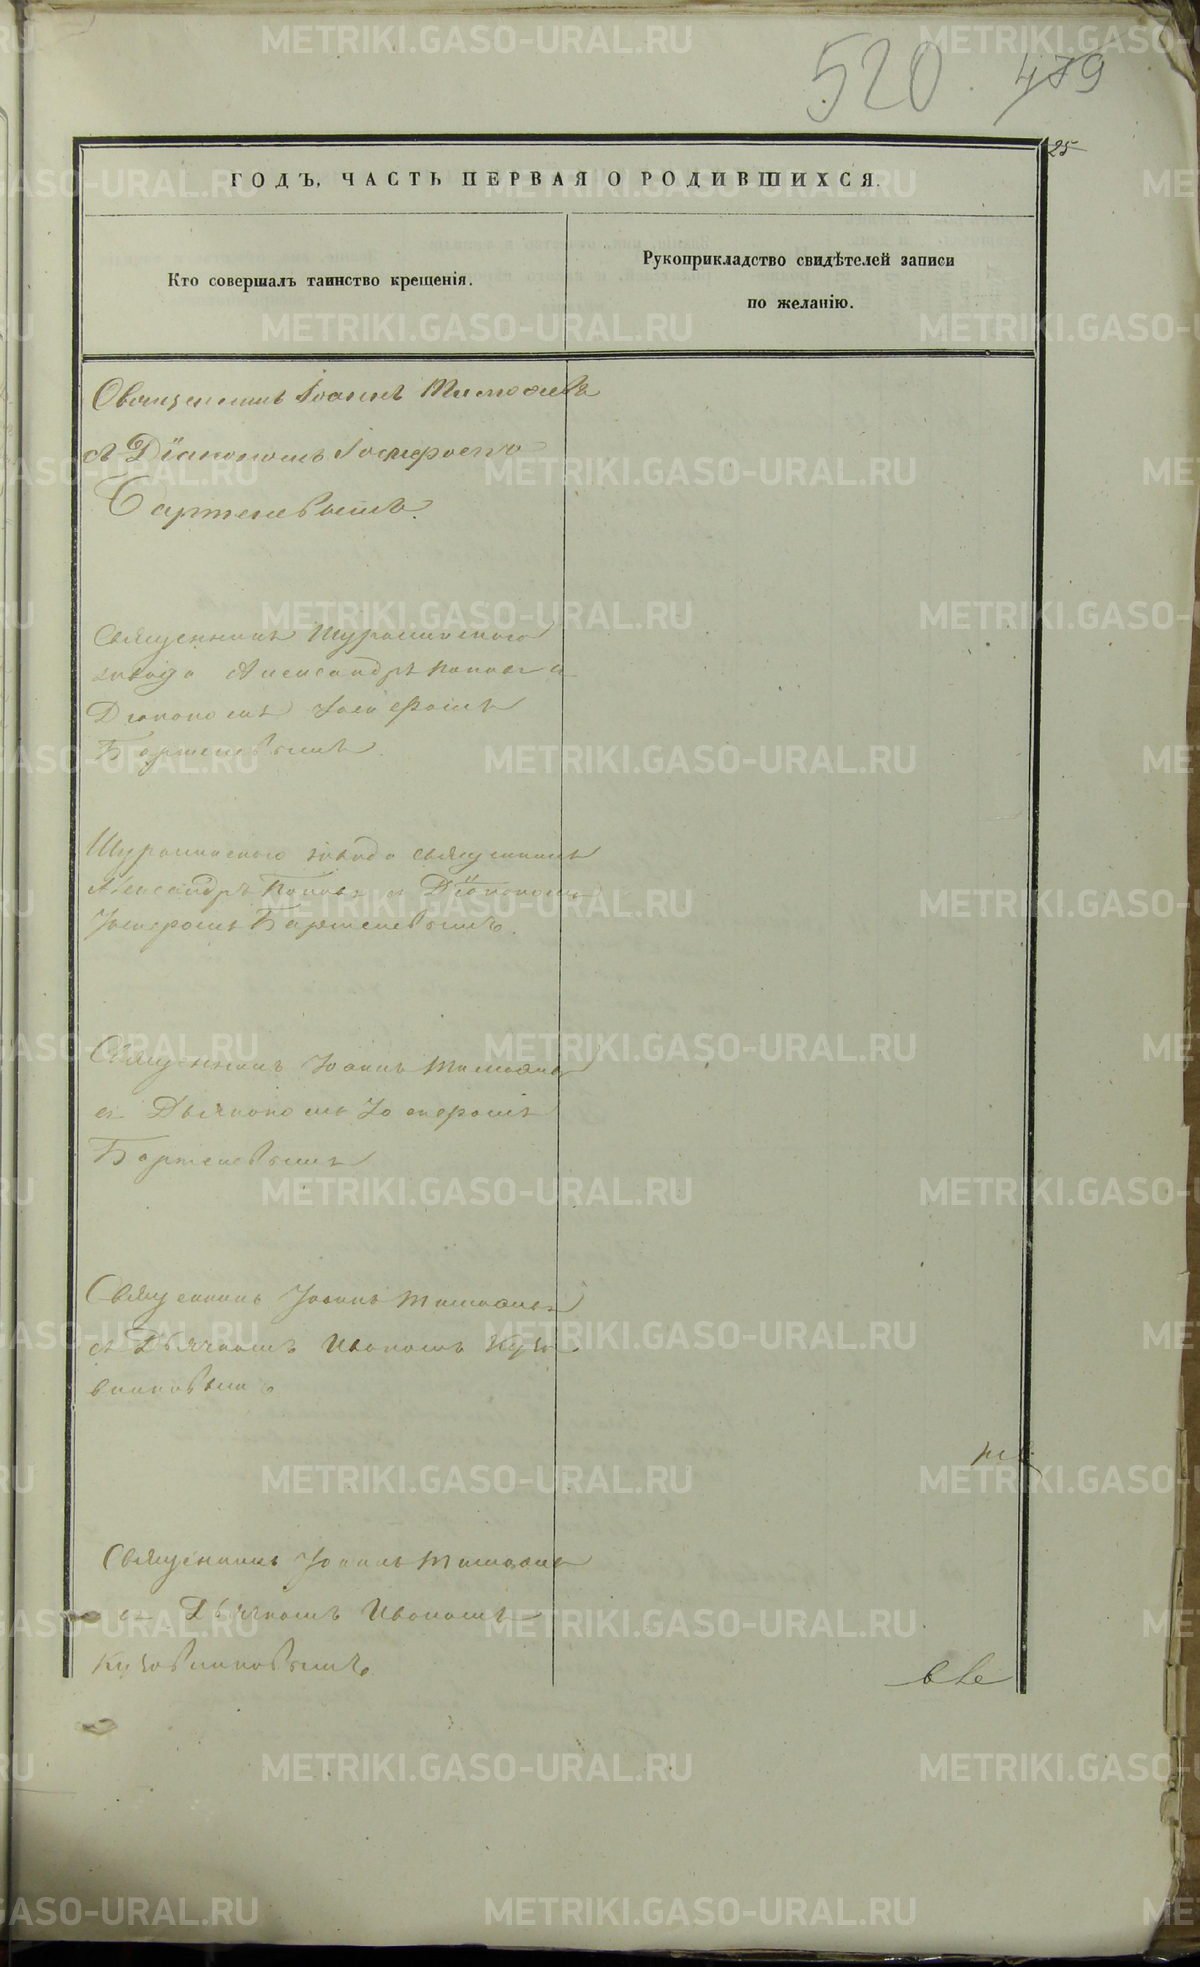 520 479
25
ГОДЪ, ЧАСТЬ ПЕРВАЯ О РОДИВШИХСЯ.
Кто совершалъ таинство крещенія.
Рукоприкладство свидѣтелей записи
по желанію.
Священникъ Іоаннъ
съ Діакономъ
Бартеневымъ.
Священникъ Шуралинскаго
завода Александръ Поповъ съ
Діакономъ Іосифомъ
Бартеневымъ.
Шуралинскаго завода священникъ
Александръ Поповъ съ Діакономъ
Іосифомъ Бартеневымъ.
Священникъ Іоаннъ
съ Дьякономъ Іосифомъ
Бартеневымъ
Священникъ Іоаннъ
съ Дьячкомъ Иваномъ Кузо
вниковымъ
Священникъ Іоаннъ
съ Дьячкомъ Иваномъ
Кузовниковымъ.
METRIKI.GASO-URAL.RU